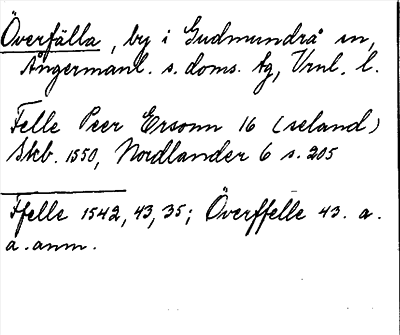 Överfälla, by i Gudmundrå sn,
Ångermanl. s. doms. tg, Vrnl. l.
Felle Peer Ersonn 16 (seland)
Skb. 1550, Nordlander 6 s. 205
Ffelle 1542, 43, 35; Överffelle 43. a.
a. anm.